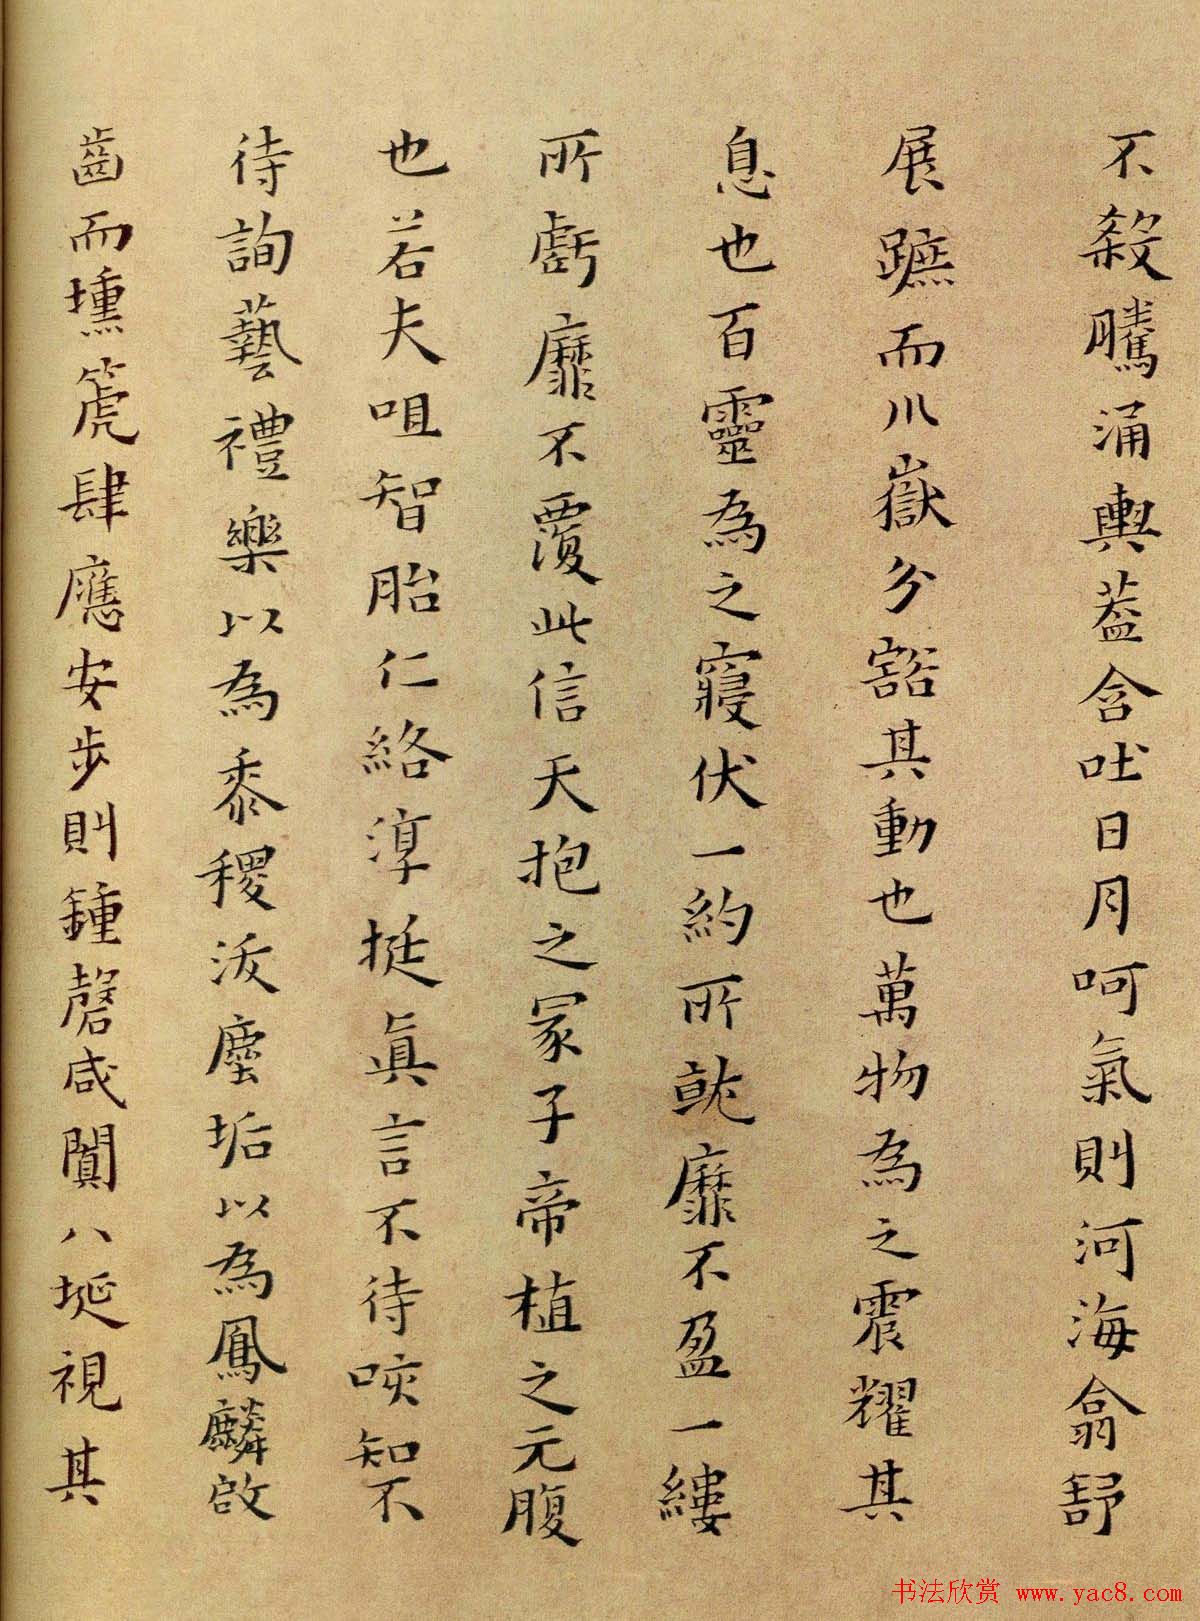 不殺騰涌輿蓋含吐日月呵氣則河海翕舒
展蹠而川嶽分豁其動也萬物為之震耀其
息也百靈為之寢伏一約所就靡不盈一縷
所虧靡不覆此信天抱之冢子帝植之元腹
也若夫咀智胎仁絡淳挺眞言不待咳知不
待詢藝禮樂以為黍稷泼塵垢以為鳳麟啟
齒而壎箎肆應安步則鍾磬咸闐八埏視其
书法欣赏 www.yac8.com